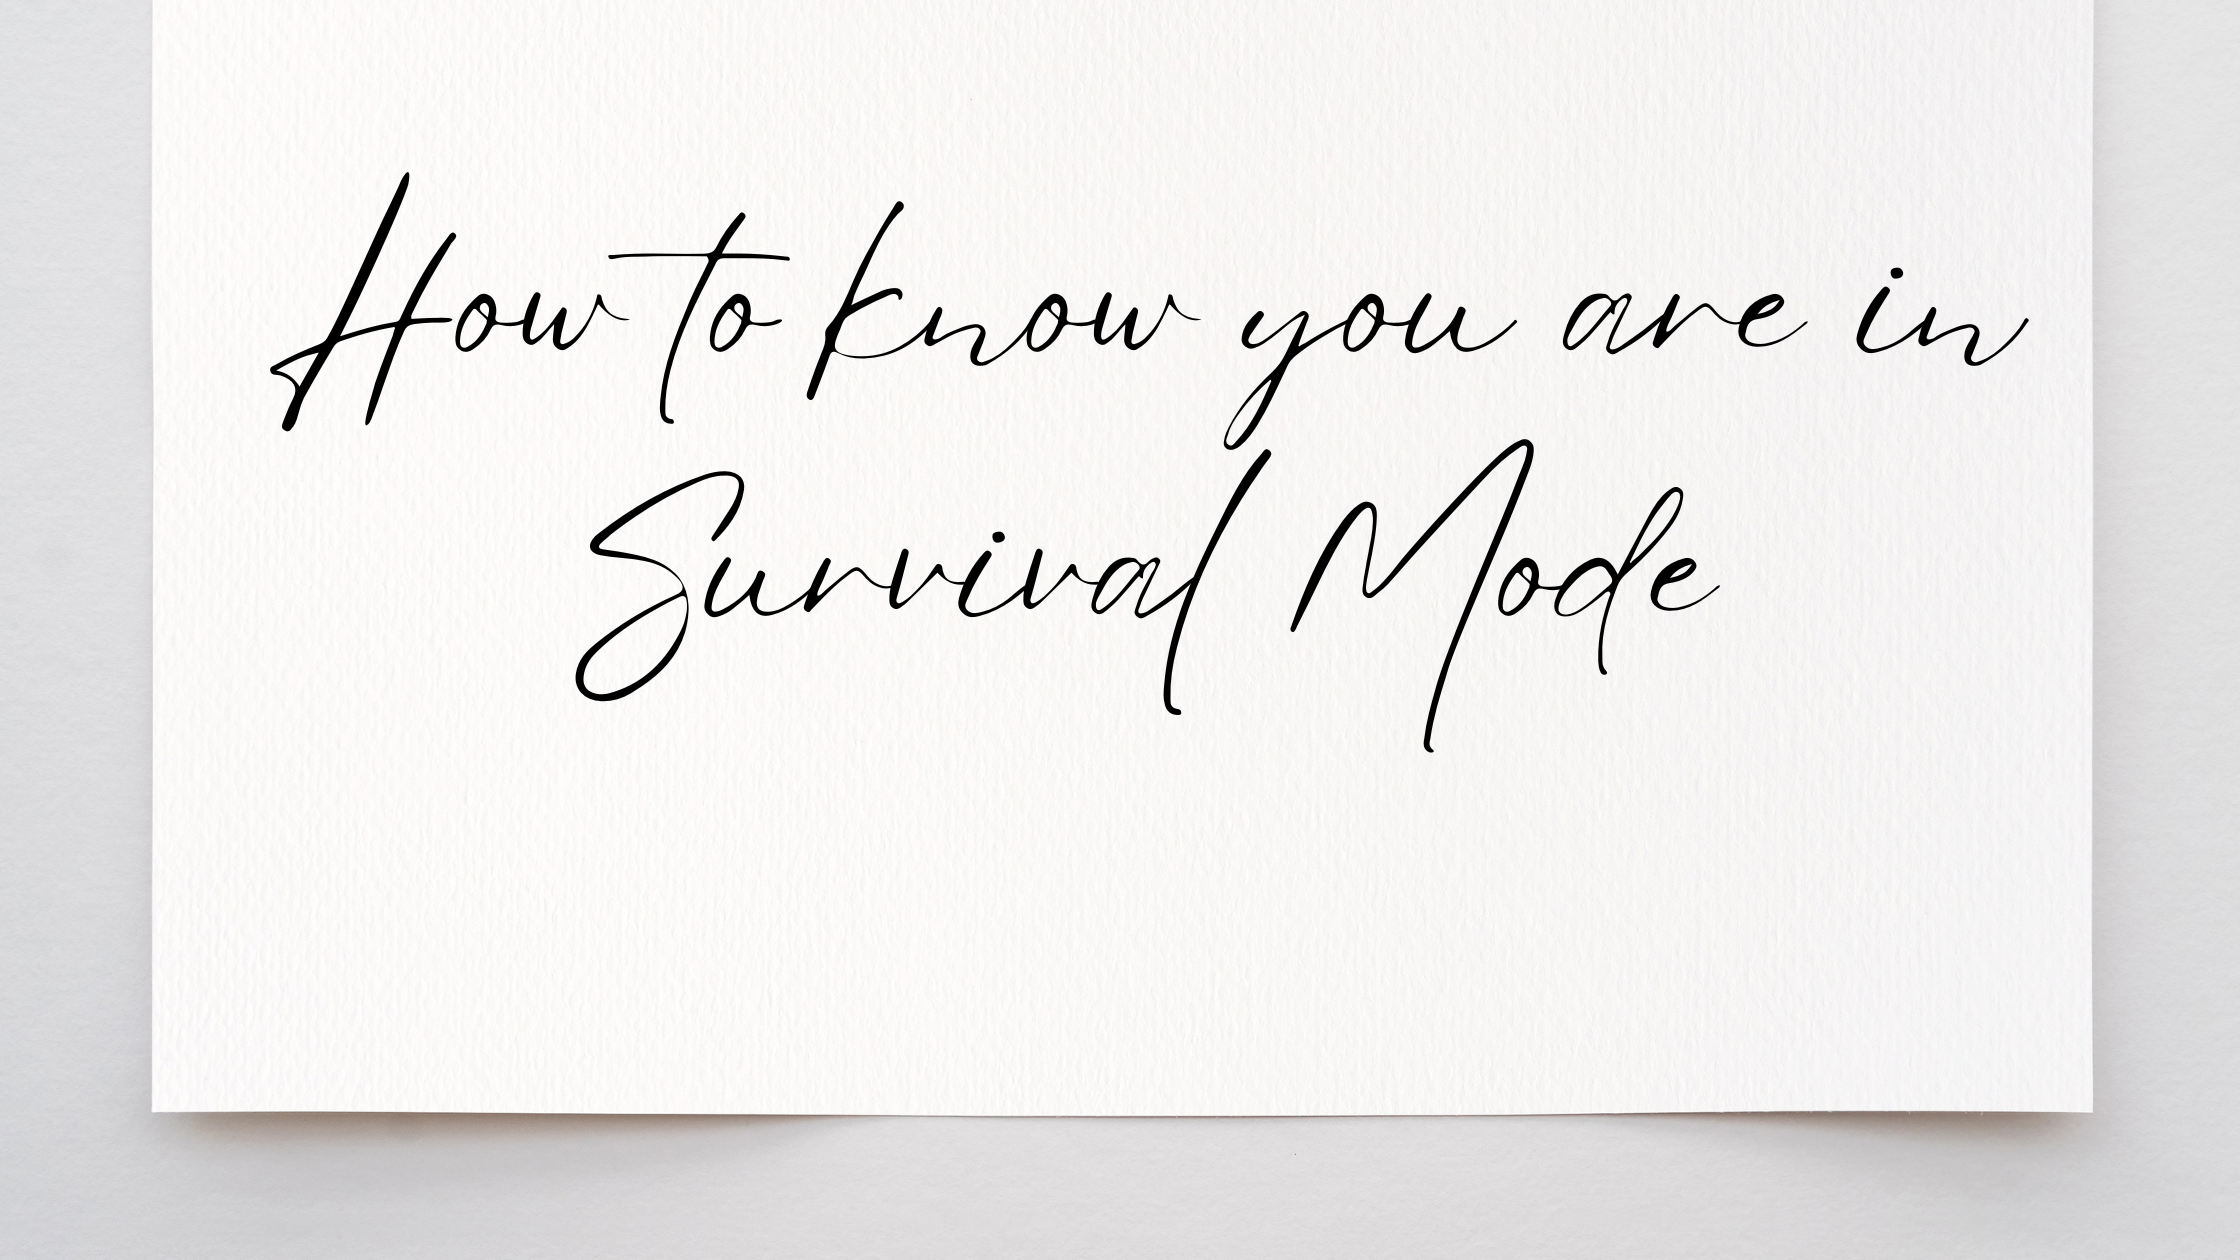 How to know you are in
Survival Mode